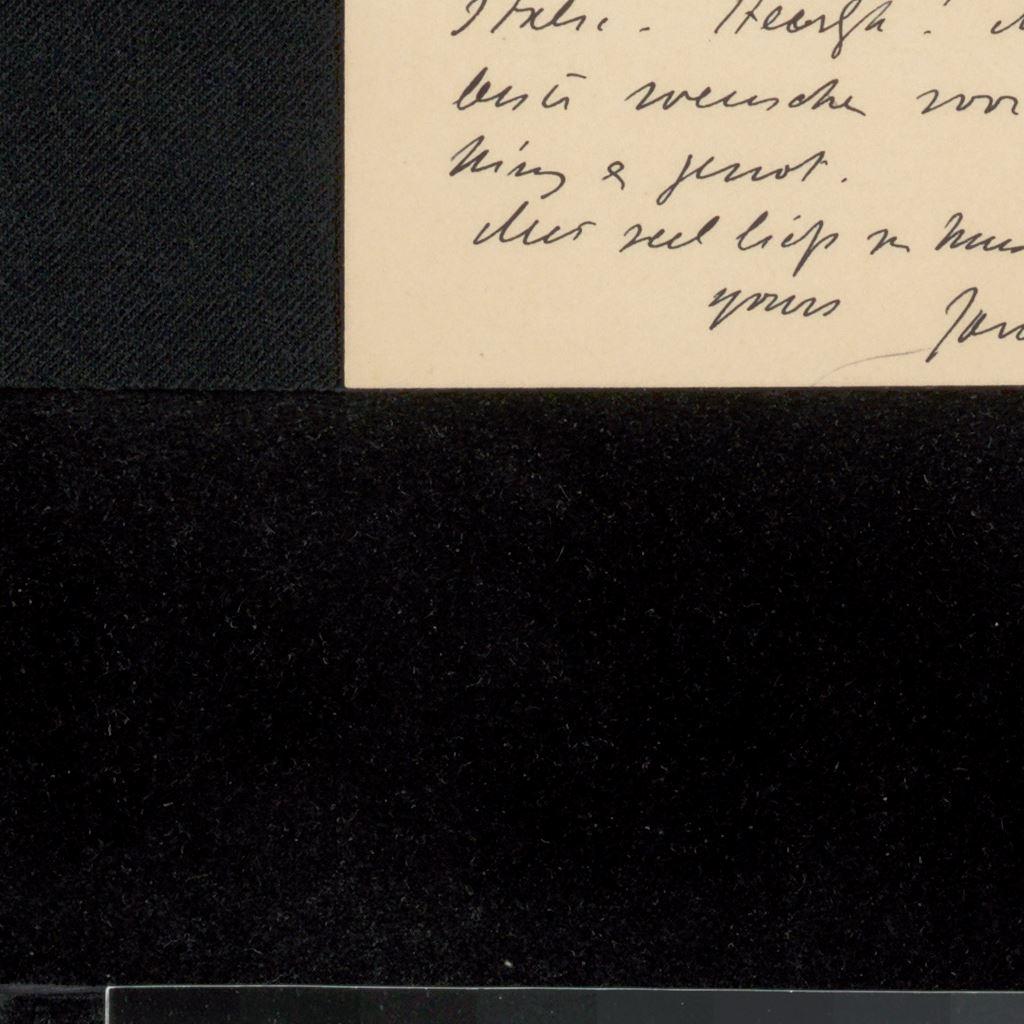 Italië. Heerlijk!
beste wenschen voor
ning en genot.
Met veel liefs en
yours